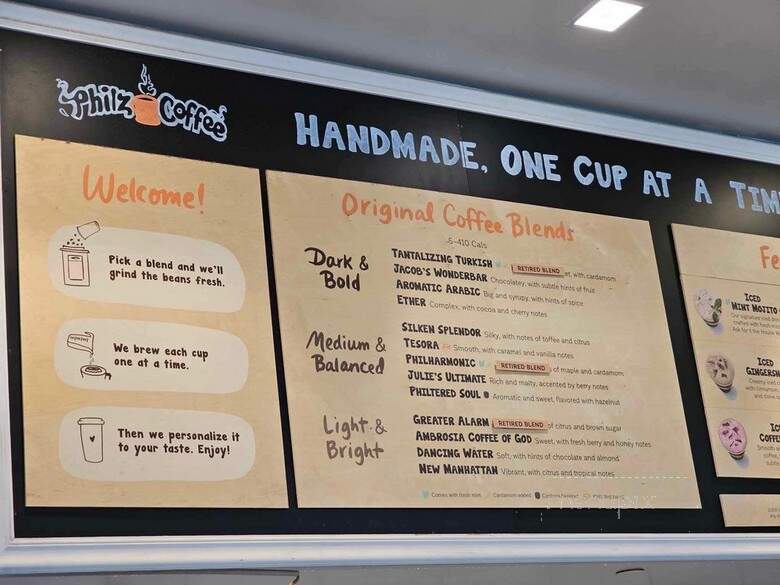 Philz Coffee
HANDMADE, ONE CUP AT A TIM
Welcome!
Pick a blend and we'll
grind the beans fresh.
We brew each cup
one at a time.
Then we personalize it
to your taste. Enjoy!
Original Coffee Blends
5-410 Cals
Dark &
Bold
TANTALIZING TURKISH RETIRED BLEND at, with cardamom
JACOB'S WONDERBAR Chocolatey, with subtle hints of fruit
AROMATIC ARABIC Big and syrupy, with hints of spice
ETHER Complex, with cocoa and cherry notes
Medium &
Balanced
SILKEN SPLENDOR Silky, with notes of toffee and citrus
TESORA Smooth, with caramel and vanilla notes
PHILHARMONIC RETIRED BLEND of maple and cardamom
JULIE'S ULTIMATE Rich and malty, accented by berry notes
PHILTERED SOUL Aromatic and sweet, flavored with hazelnut
Light &
Bright
GREATER ALARM RETIRED BLEND of citrus and brown sugar
AMBROSIA COFFEE OF GOD Sweet, with fresh berry and honey notes
DANCING WATER Soft, with hints of chocolate and almond
NEW MANHATTAN Vibrant, with citrus and tropical notes
Comes with fresh mint Cardamom added
Fe
ICED
MINT MOJITO
ICED
GINGERSN
IC
COFFE